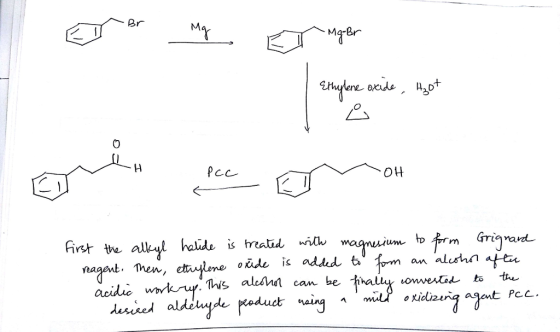 Br
Mg
MgBr
Ethylene oxide, H3O+
O
O
H
PCC
OH
First the alkyl halide is treated with magnesium to form Grignard
reagent. Then, ethylene oxide is added to form an alcohol after
acidic work-up. This alcohol can be finally converted to the
desired aldehyde product using a mild oxidizing agent PCC.